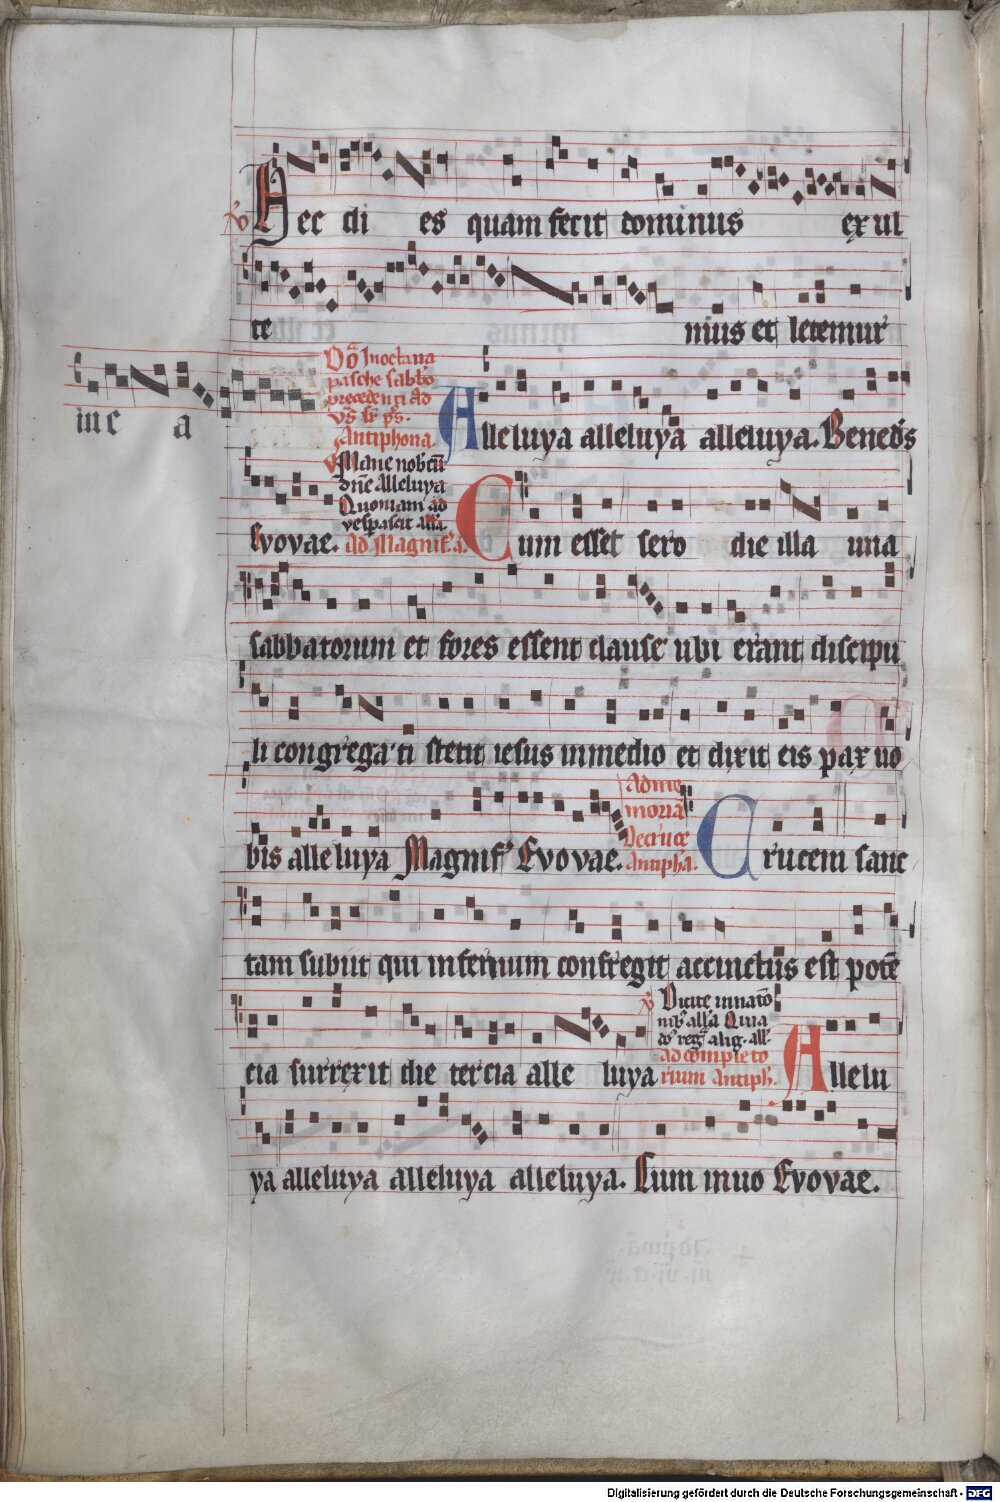 Hec di es quam fecit dominus ex ul
te mus et letemur
in e a
In octaua
pasche sabbo
precedenti ad
Antiphona.
Alleluya alleluya alleluya. Bened's
Mane nobcu
dne alleluya
Quoniam ad
vesperascit alla.
Evovae. Ad Magnif. a.
Cum esset sero die illa una
sabbatorum et fores essent clause ubi erant discipu
li congregati stetit iesus in medio et dixit eis pax uo
bis alleluya Magnif' Evovae.
Ad me
moria
De cruce
Antipha.
Crucem sanc
tam subiit qui infernum confregit accinctus est poten
cia surrexit die tercia alle luya
Dicite in nato
nib' alla Quia
do' reg' a lig. all'.
ad comple to
rium Antiph.
Allelu
ya alleluya alleluya alleluya. Cum inuo Evovae.
Digitalisierung gefördert durch die Deutsche Forschungsgemeinschaft - DFG